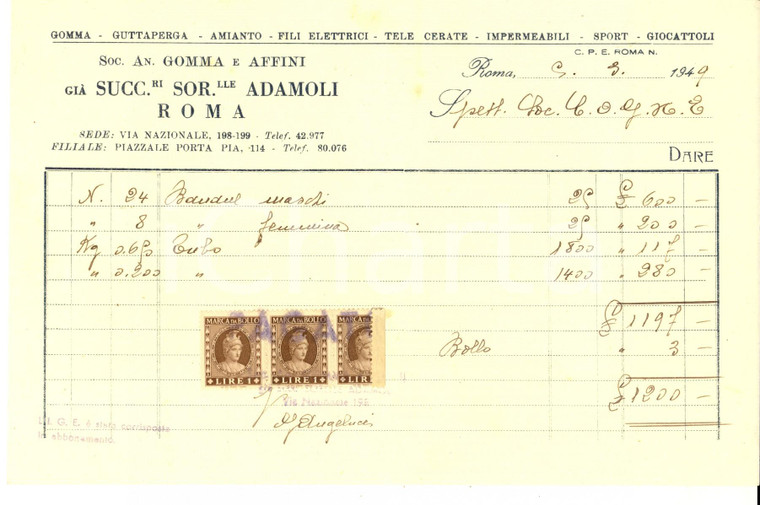 GOMMA - GUTTAPERGA - AMIANTO - FILI ELETTRICI - TELE CERATE - IMPERMEABILI - SPORT - GIOCATTOLI
C. P. E. ROMA N.
SOC. AN. GOMMA E AFFINI
GIÀ SUCC.RI SOR.LLE ADAMOLI
ROMA
SEDE: VIA NAZIONALE, 198-199 - Telef. 42.977
FILIALE: PIAZZALE PORTA PIA, 114 - Telef. 80.076
Roma, 5. 3. 1949
Spett. Soc. C.O.G.N.E
DARE
N. 24 maschi 25 £ 600 -
" 8 " femmina 25 " 200 -
Kg 0.65 Tubo 1800 " 117 -
" 0.200 " 1400 " 280 -
£ 1197 -
Bollo " 3 -
£ 1200 -
MARCA DA BOLLO MARCA DA BOLLO MARCA DA
LIRE 1 LIRE 1 LIRE
PAGATO
Via Nazionale 198
D'Angelucci
L'I. G. E. è stata corrisposta
in abbonamento